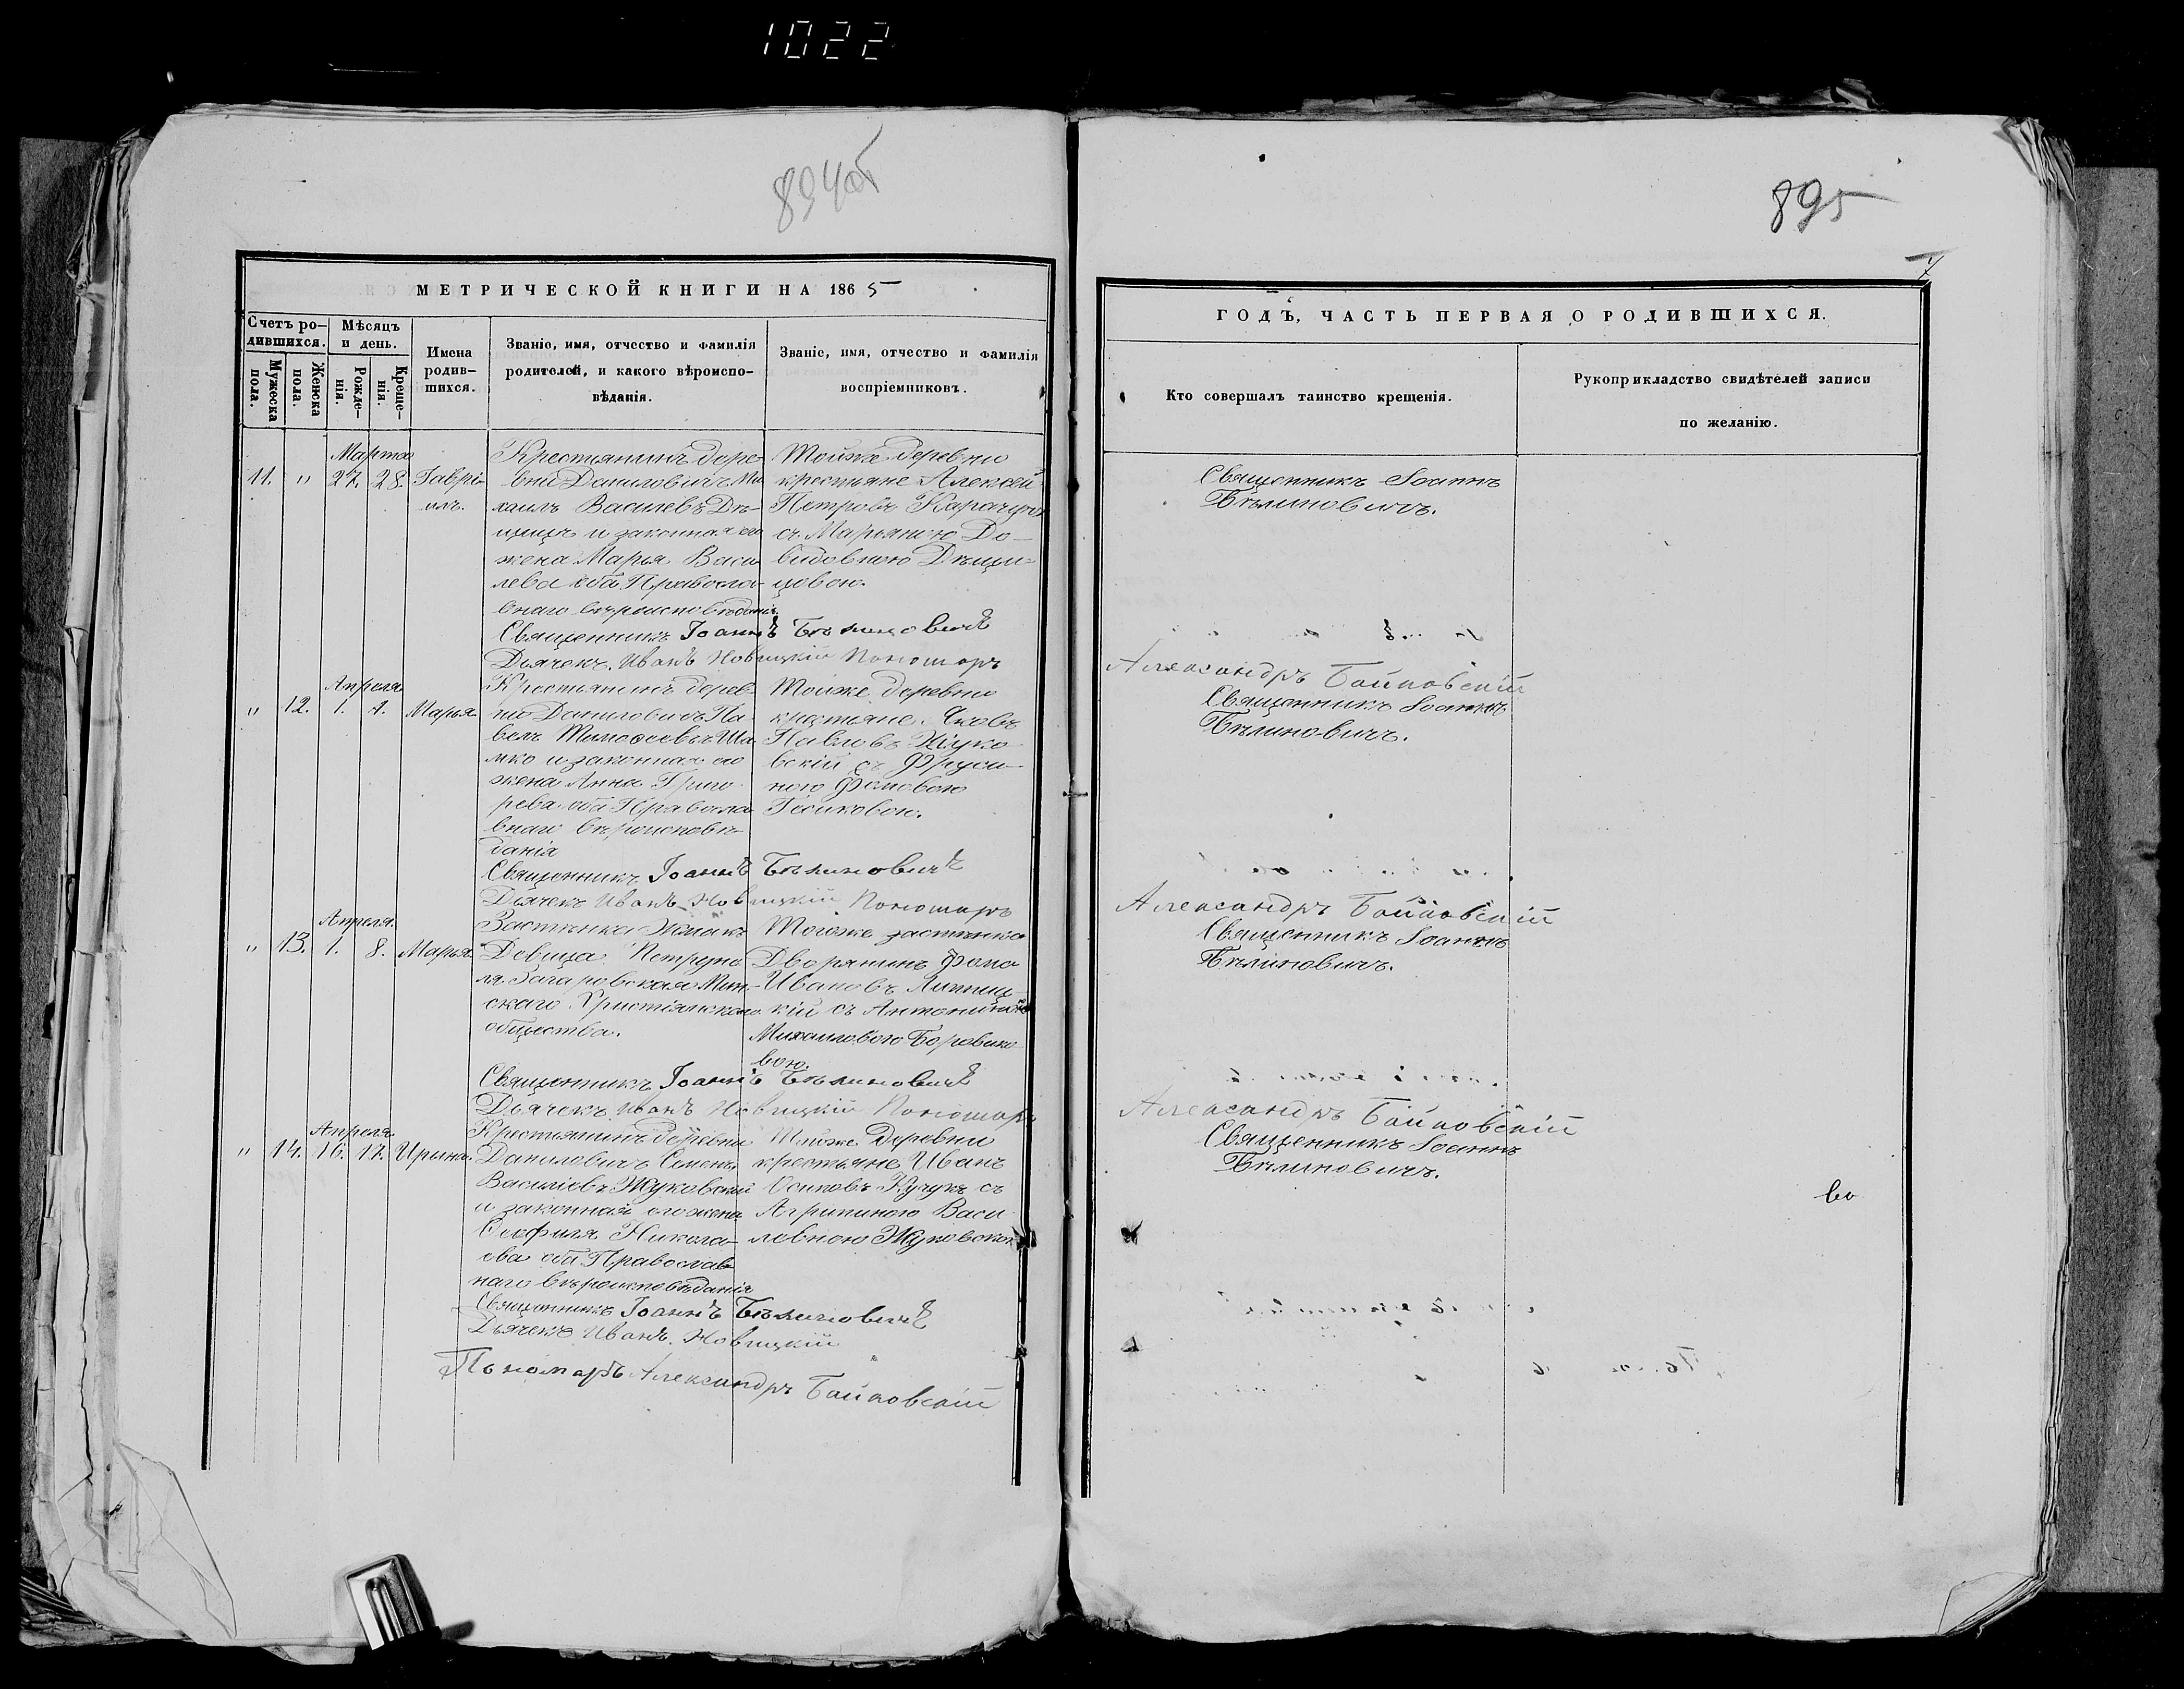 1022
894об
895
7
МЕТРИЧЕСКОЙ КНИГИ НА 1865
Счетъ ро-
дившихся.
Мужеска
пола.
Женска
пола.
Мѣсяцъ
и день.
Рожде-
нія.
Креще-
нія.
Имена
родив-
шихся.
Званіе, имя, отчество и фамилія
родителей, и какого вѣроиспо-
вѣданія.
Званіе, имя, отчество и фамилія
воспріемниковъ.
ГОДЪ, ЧАСТЬ ПЕРВАЯ О РОДИВШИХСЯ.
Кто совершалъ таинство крещенія.
Рукоприкладство свидѣтелей записи
по желанію.
Марта
11. " 27. 28. Гаврі-
илъ.
Крестьянинъ дере-
вни Даниловичъ Ми
хаилъ Васильевъ Дѣ-
щицъ и законная его
жена Марья Васи
лева оба Правосла-
внаго вѣроисповѣданія
Тойже деревни
крестьяне Алексѣй
Петровъ Карачунъ
съ Марьяною До-
видовною Дѣщи-
цовою.
Священникъ Іоаннъ
Бѣлиновичъ.
Священникъ Іоаннъ Бѣлиновичъ
Дьячекъ Иванъ Новицкій Пономарь
Александръ Байковскій
Апреля
" 12. 1. 4. Марья.
Крестьянинъ дерев-
ни Даниловичъ Па-
велъ Тимофеевъ Ша-
мко и законная его
жена Анна Григо-
рева оба Правосла-
внаго вѣроисповѣ-
данія
Тойже деревни
крестьяне Яковъ
Павловъ Жуко-
вскій съ Фруси-
ною Фомовою
Гесиковою.
Священникъ Іоаннъ
Бѣлиновичъ.
Священникъ Іоаннъ Бѣлиновичъ
Дьячекъ Иванъ Новицкій Пономарь
Александръ Байковскій
Апреля.
" 13. 1. 8. Марья.
Застѣнка
Девица Петруне
ля
скаго Христіянскаго
общества.
Тогоже застѣнка
Дворянинъ Фома
Ивановъ Липниц-
кій съ Антониною
Михаиловою Боровико
вою.
Священникъ Іоаннъ
Бѣлиновичъ.
Священникъ Іоаннъ Бѣлиновичъ
Дьячекъ Иванъ Новицкій Пономарь
Александръ Байковскій
Апреля
" 14. 16. 17. Ирына.
Крестьянинъ деревни
Даниловичъ Семенъ
Василіевъ Жуковскій
и законная его жена
Софиля Никола-
ева оба Православ
наго вѣроисповѣданія
Тойже Деревни
крестьяне Иванъ
Осиповъ Кучукъ съ
Агрипиною Васи
левною Жуковскою
Священникъ Іоаннъ
Бѣлиновичъ.
Священникъ Іоаннъ Бѣлиновичъ
Дьячекъ Иванъ Новицкій
Пономарь Александръ Байковскій
во